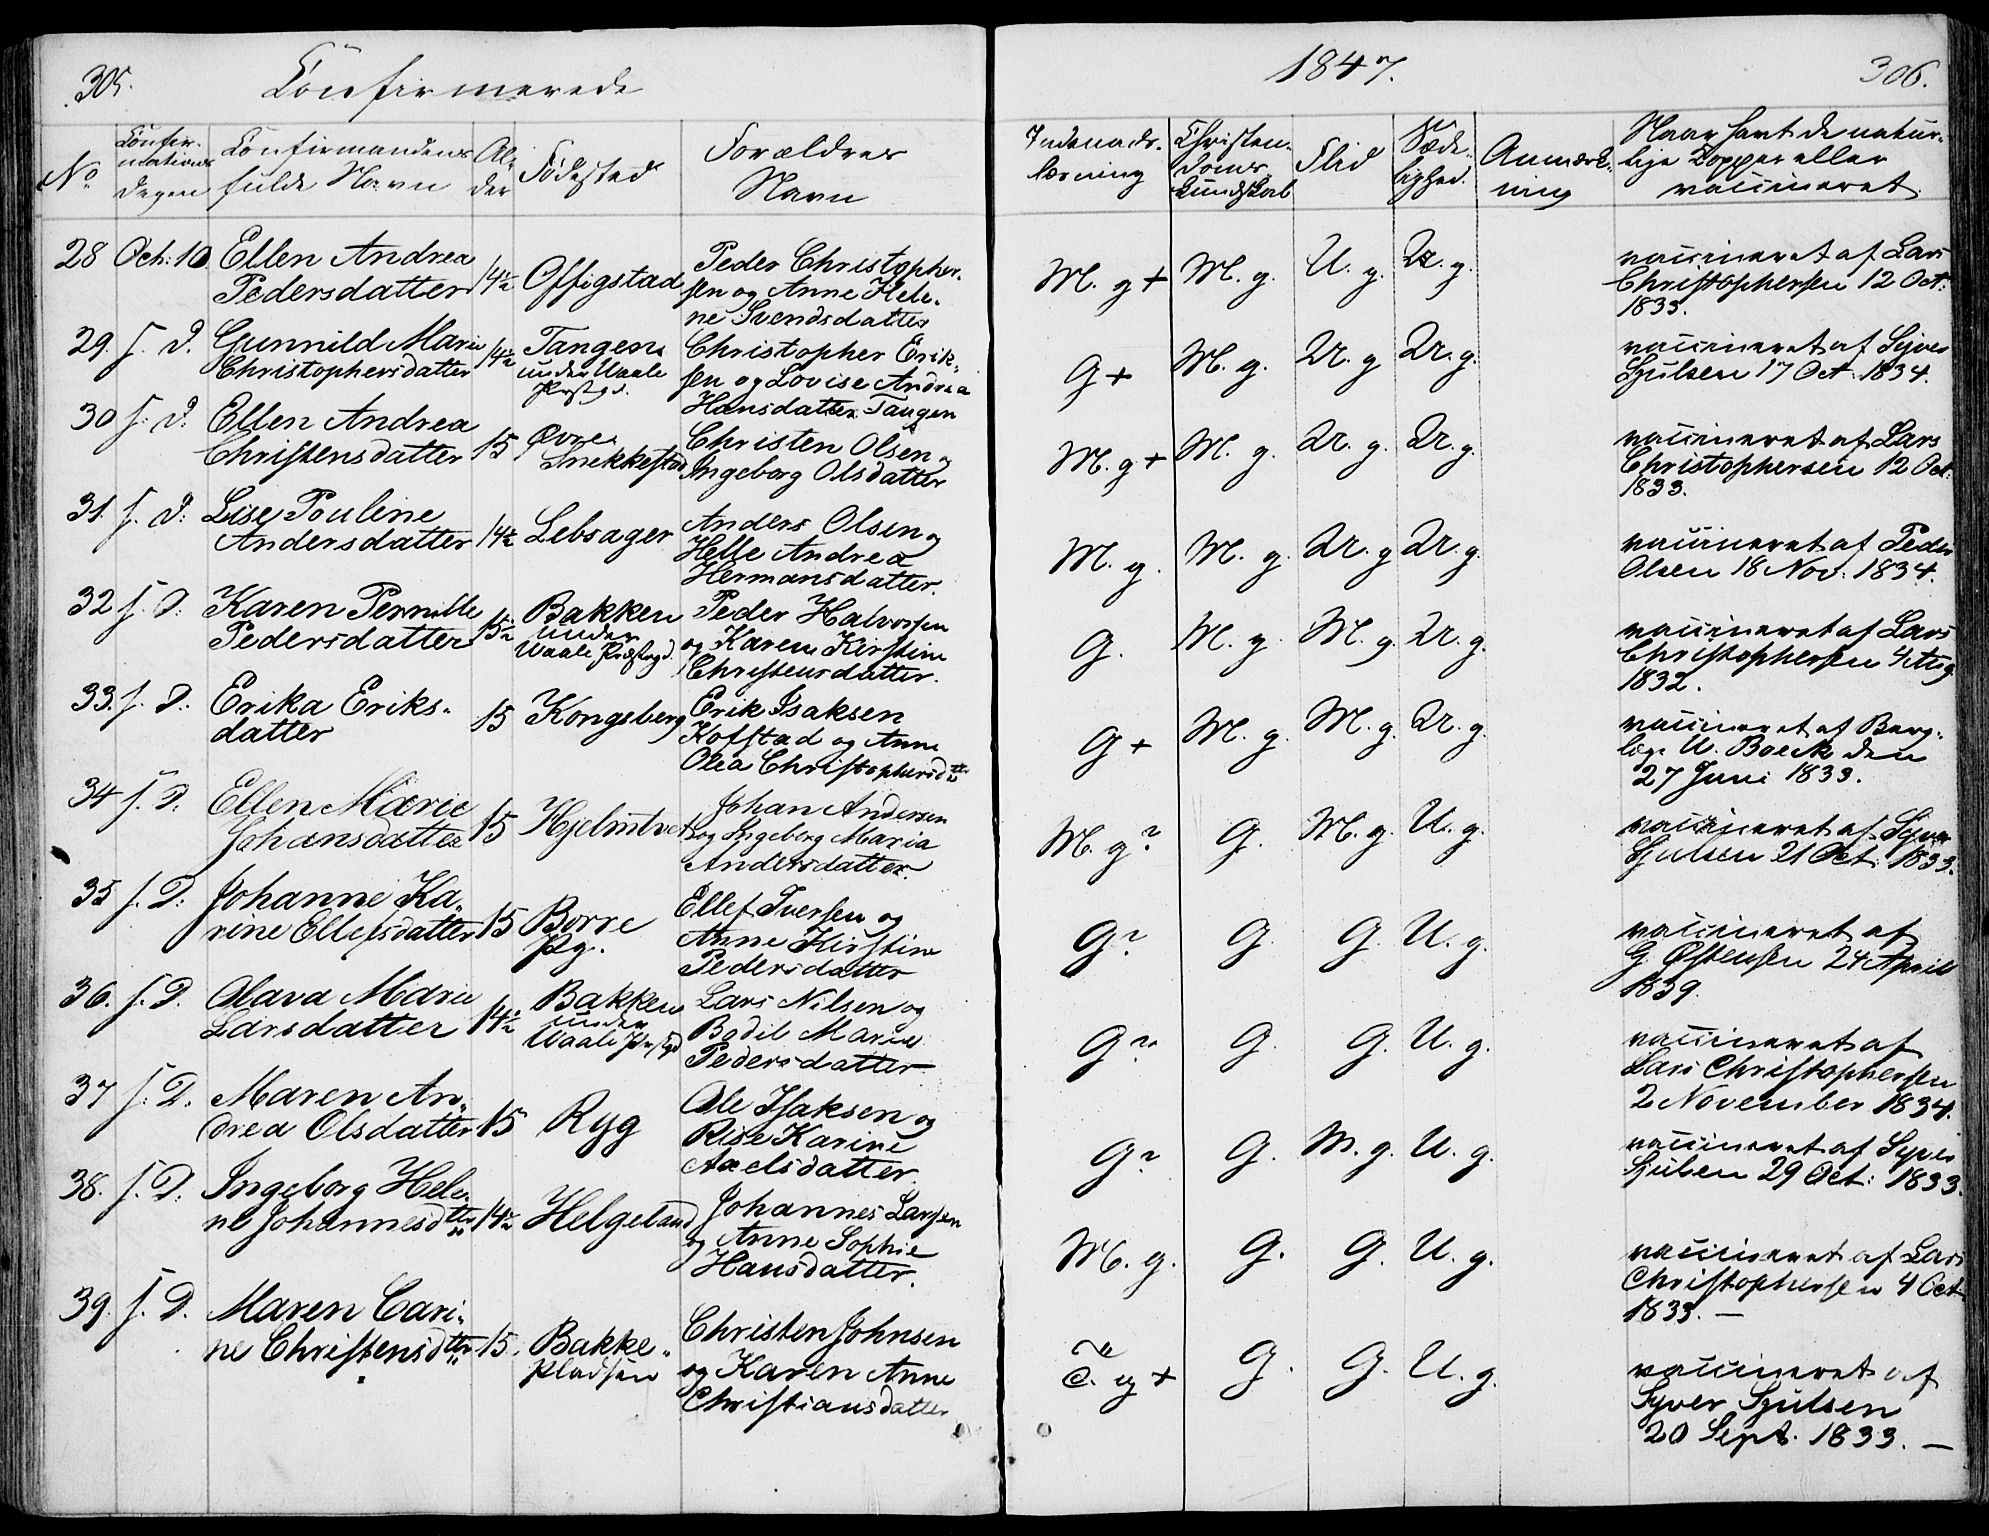 305. Confirmerede 1847. 306.
No
Confir-
mations
Dagen
Confirmandens
fulde Navn
Al-
der
Fødested
Forældres
Navn
Indenads-
læsning
Christen-
doms
Kundskab
Flid
Sæde-
lighed.
Anmærk-
ning
Naar havt de natur-
lige Kopper eller
vaccineret.
28 Oct: 10 Ellen Andrea
Pedersdatter
14½ Offigstad
Peder Christopher-
sen og Anne Hele-
ne Svendsdatter
M. g + M. g. U. g. U. g.
vaccineret af Lars
Christophersen 12 Oct:
1833.
29. s. D. Gunnild Marie
Christophersdatter
14½ Tangen
under Vaale
Præstgd.
Christopher Erik-
sen og Lovise Andrea
Hansdatter Tangen
G + M. g. U. g U. g.
vaccineret af Syver
Sjulsen 17 Oct. 1834.
30 s. D. Ellen Andrea
Christensdatter
15 Øvre
Snekkestad
Christen Olsen og
Ingeborg Olsdatter
M. g + M. g. U. g. U. g.
vaccineret af Lars
Christophersen 12 Oct:
1833.
31. s. D: Lise Pouline
Andersdatter
14½ Lebsager
Anders Olsen og
Helle Andrea
Hermansdatter.
M. g. M. g. U. g U. g.
vaccineret af Peder
Olsen 18 Nov: 1834.
32 s. D: Karen Pernille
Pedersdatter
15½ Bakken
under
Vaale Præstgd.
Peder Halvorsen
og Karen Kirstine
Christensdatter.
G. M. g. M. g. U. g.
vaccineret af Lars
Christophersen 4 Aug
1832.
33. s. D: Erika Eriks-
datter
15 Kongsberg
Erik Isaksen
Kofstad og Anne
Olea Christophersdtter
G + M. g. M. g. U. g.
vaccineret af Berg-
læge U. Boeck den
27 Juni 1833.
34 s. D: Ellen Marie
Johansdatter
15 Hjelmtvet
Johan Andersen
og Ingeborg Maria
Andersdatter.
M. g? G. M. g. U. g.
vaccineret af Syver
Sjulsen 21 Oct. 1833.
35 s. D: Johanne Ka-
rine Ellefsdatter
15 Borre
Pg.
Ellef Iversen og
Anne Kirstine
Pedersdatter
G? G. G. U. g.
vaccineret af
G. Østensen 24 April
1839.
36. s. D. Olava Marie
Larsdatter
14½ Bakken
under
Vaale Præstgd
Lars Nilsen og
Bodil Marie
Pedersdatter
G? G. G. U. g.
vaccineret af
Lars Christophersen
2 November 1834.
37 s. D. Maren An-
drea Olsdatter
15 Ryg
Ole Isaksen og
Rise Karine
Axelsdatter.
G? G. M. g. U. g.
vaccineret af Syver
Sjulsen 29 Oct: 1833.
38. s. D. Ingeborg Hele-
ne Johannesdtter
14½ Helgeland
Johannes Larsen
og Anne Sophie
Hansdatter.
M. g. G. G. U. g.
vaccineret af Lars
Christophersen 4 Oct
1833. —
39. s. D. Maren Cari-
ne Christensdtter
15. Bakke-
Pladsen
Christen Johnsen
og Karen Anne
Christiansdatter
T. g + G. G. U. g.
vaccineret af
Syver Sjulsen
20 Sept. 1833. —